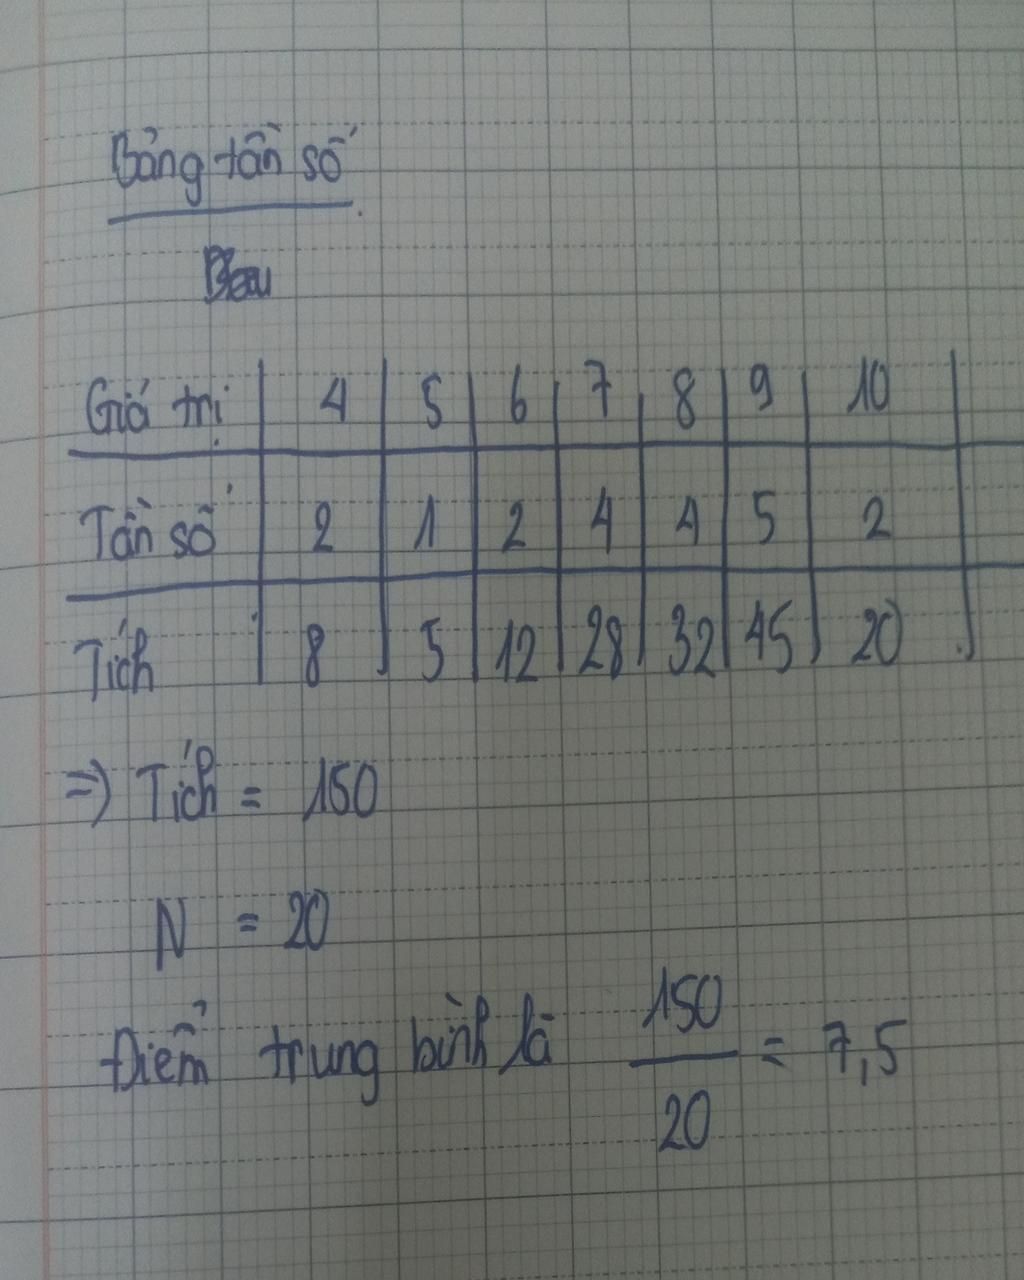 Bảng tần số
Giá trị 4 5 6 7 8 9 10
Tần số 2 1 2 4 4 5 2
Tích 8 5 12 28 32 45 20
=> Tích = 150
N = 20
Điểm trung bình là 150/20 = 7,5